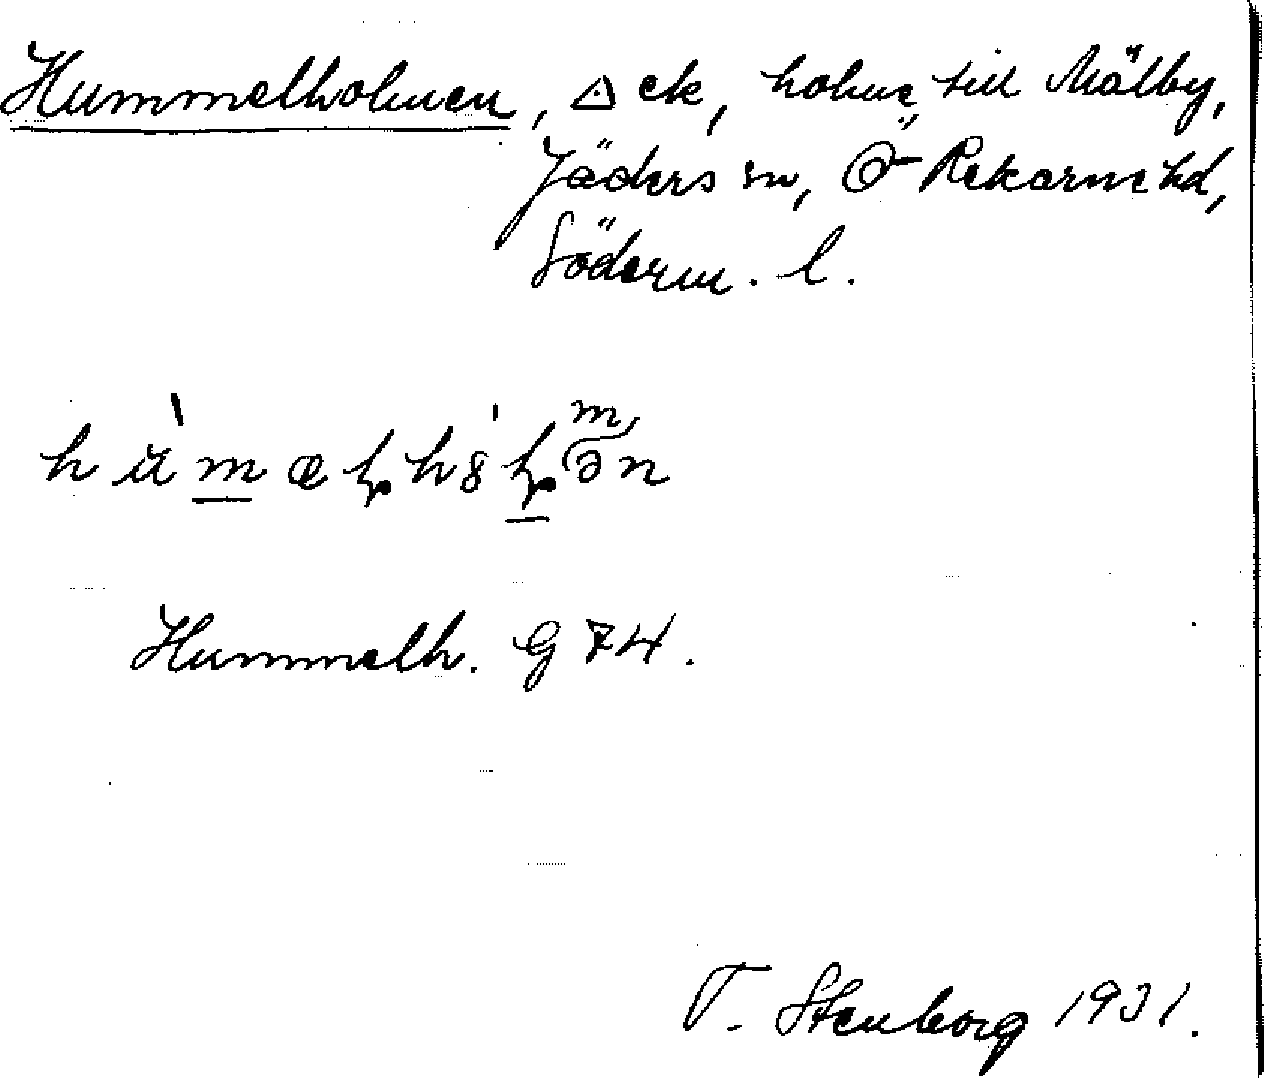 Hummelholmen, ck, holme till Mälby,
Jäders sn, Ö-Rekarne hd,
Söderm. l.
Hummelh. G 74.
T. Stenborg 1931.